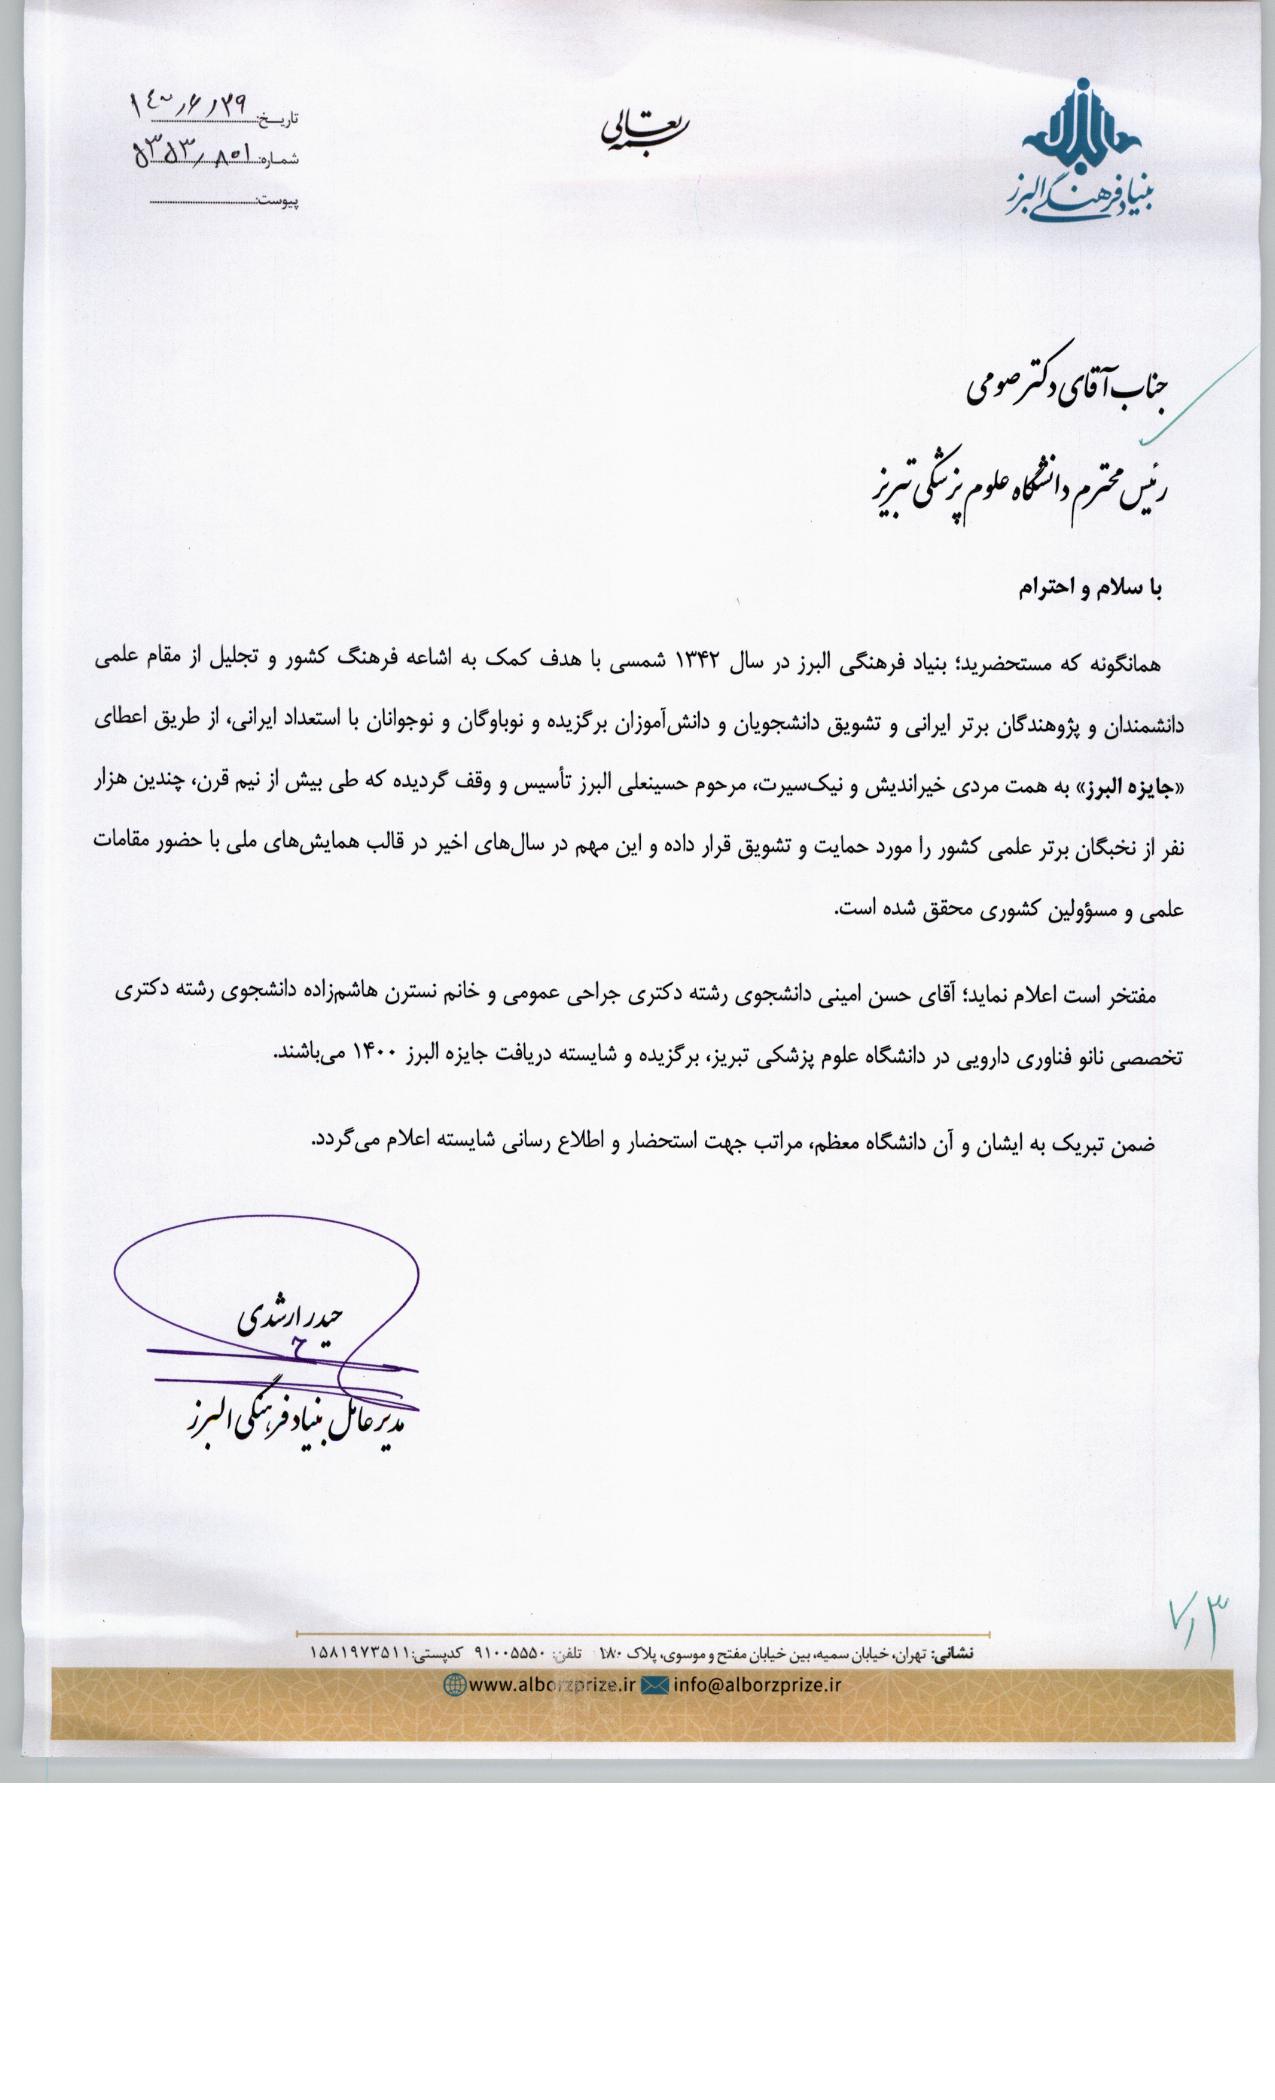 بنیاد فرهنگی البرز
بسمه تعالی
تاریخ: ۱۴۰۰/۶/۲۹
شماره:
پیوست:
جناب آقای دکتر صومی
رئیس محترم دانشگاه علوم پزشکی تبریز
با سلام و احترام
همانگونه که مستحضرید؛ بنیاد فرهنگی البرز در سال ۱۳۴۲ شمسی با هدف کمک به اشاعه فرهنگ کشور و تجلیل از مقام علمی
دانشمندان و پژوهندگان برتر ایرانی و تشویق دانشجویان و دانش‌آموزان برگزیده و نوباوگان و نوجوانان با استعداد ایرانی، از طریق اعطای
«جایزه البرز» به همت مردی خیراندیش و نیک‌سیرت، مرحوم حسینعلی البرز تأسیس و وقف گردیده که طی بیش از نیم قرن، چندین هزار
نفر از نخبگان برتر علمی کشور را مورد حمایت و تشویق قرار داده و این مهم در سال‌های اخیر در قالب همایش‌های ملی با حضور مقامات
علمی و مسؤولین کشوری محقق شده است.
مفتخر است اعلام نماید؛ آقای حسن امینی دانشجوی رشته دکتری جراحی عمومی و خانم نسترن هاشم‌زاده دانشجوی رشته دکتری
تخصصی نانو فناوری دارویی در دانشگاه علوم پزشکی تبریز، برگزیده و شایسته دریافت جایزه البرز ۱۴۰۰ می‌باشند.
ضمن تبریک به ایشان و آن دانشگاه معظم، مراتب جهت استحضار و اطلاع رسانی شایسته اعلام می‌گردد.
حیدر ارشدی
مدیرعامل بنیاد فرهنگی البرز
۷/۳
نشانی: تهران، خیابان سمیه، بین خیابان مفتح و موسوی، پلاک ۱۸۰ تلفن: ۹۱۰۰۵۵۵۰ کدپستی: ۱۵۸۱۹۷۳۵۱۱
www.alborzprize.ir info@alborzprize.ir